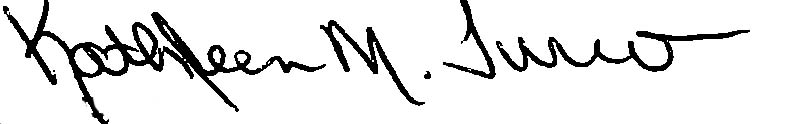 Kathleen M. Turco